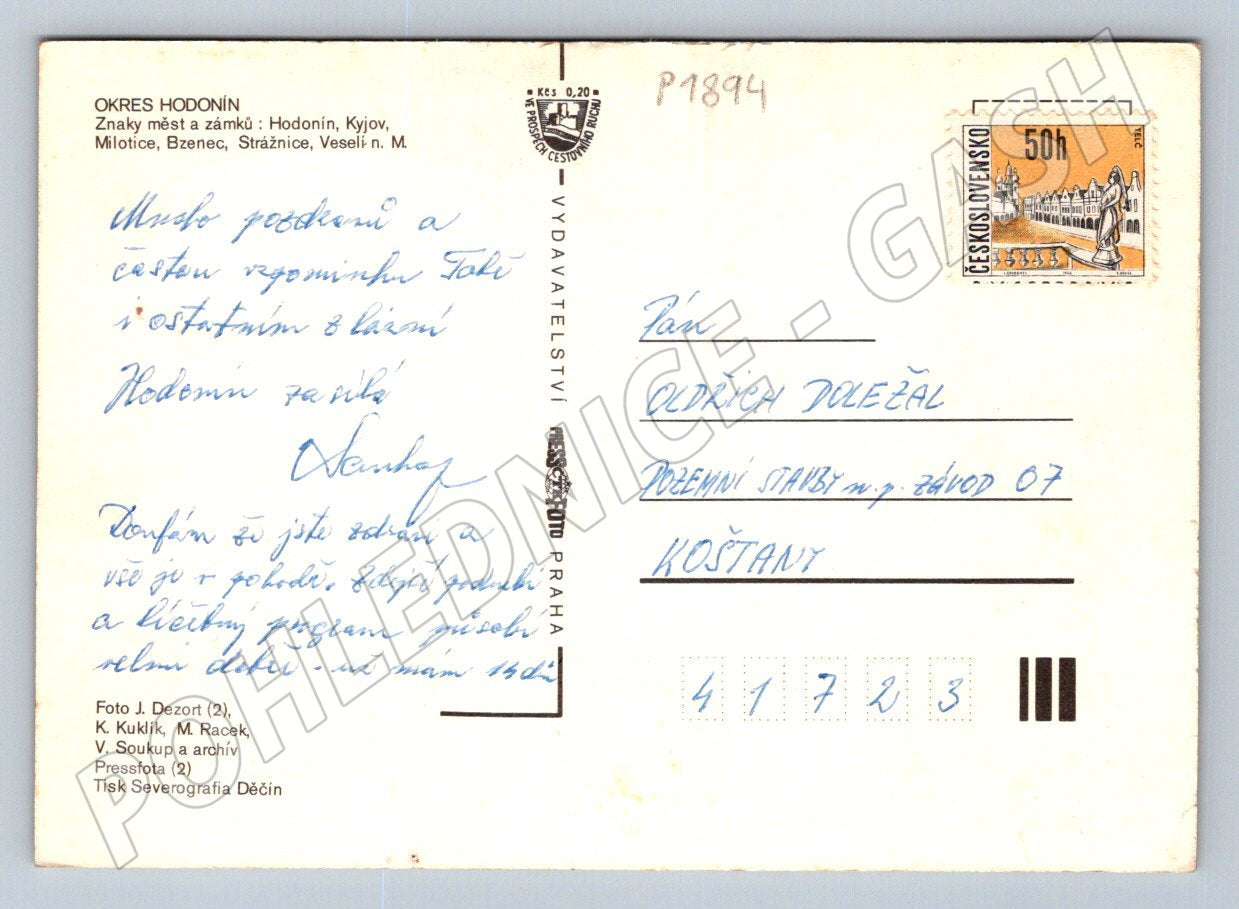 OKRES HODONÍN
Znaky měst a zámků : Hodonín, Kyjov,
Milotice, Bzenec, Strážnice, Veselí n. M.
Kčs 0,20
VE PROSPĚCH CESTOVNÍHO RUCHU
P1894
ČESKOSLOVENSKO
50h
TELČ
Mnoho pozdravů a
častou vzpomínku Tobě
i ostatním z lázní
Hodonín zasílá
Doufám že jste zdraví a
vše je v pohodě. Zdejší
a léčebný program působí
velmi dobře - už mám 14 dnů
Foto J. Dezort (2),
K. Kuklík, M. Racek,
V. Soukup a archív
Pressfota (2)
Tisk Severografia Děčín
VYDAVATELSTVÍ PRESSFOTO PRAHA
ČTK
Pán
OLDŘICH DOLEŽAL
POZEMNÍ STAVBY n.p. ZÁVOD 07
KOŠŤANY
41723
POHLEDNICE - GASH